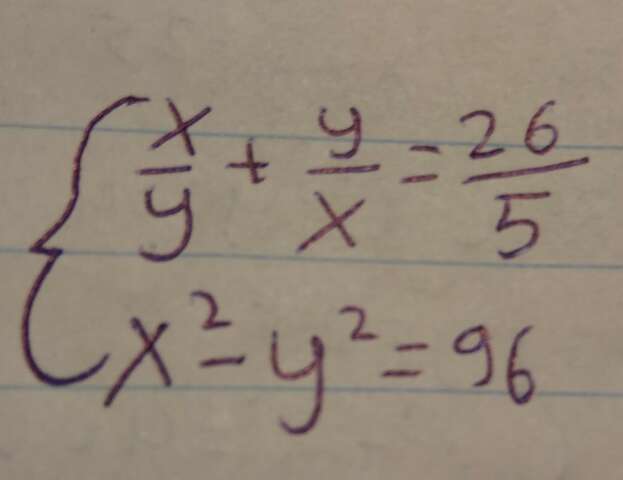 x/y + y/x = 26/5
x² - y² = 96